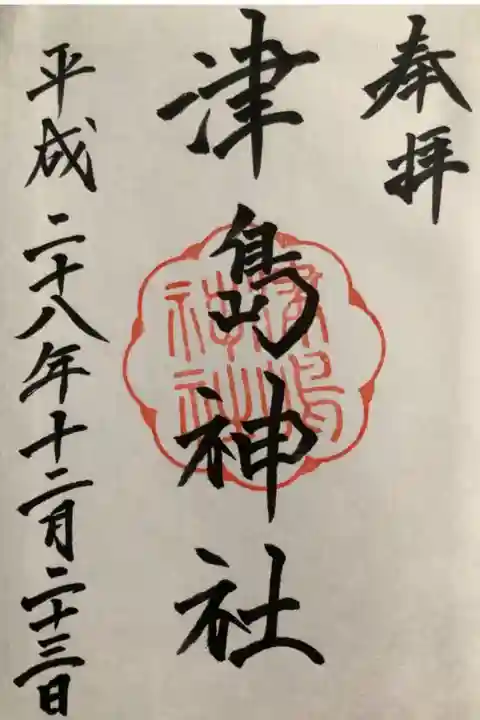 奉拝
津島神社
津嶋神社
平成二十八年十二月二十三日